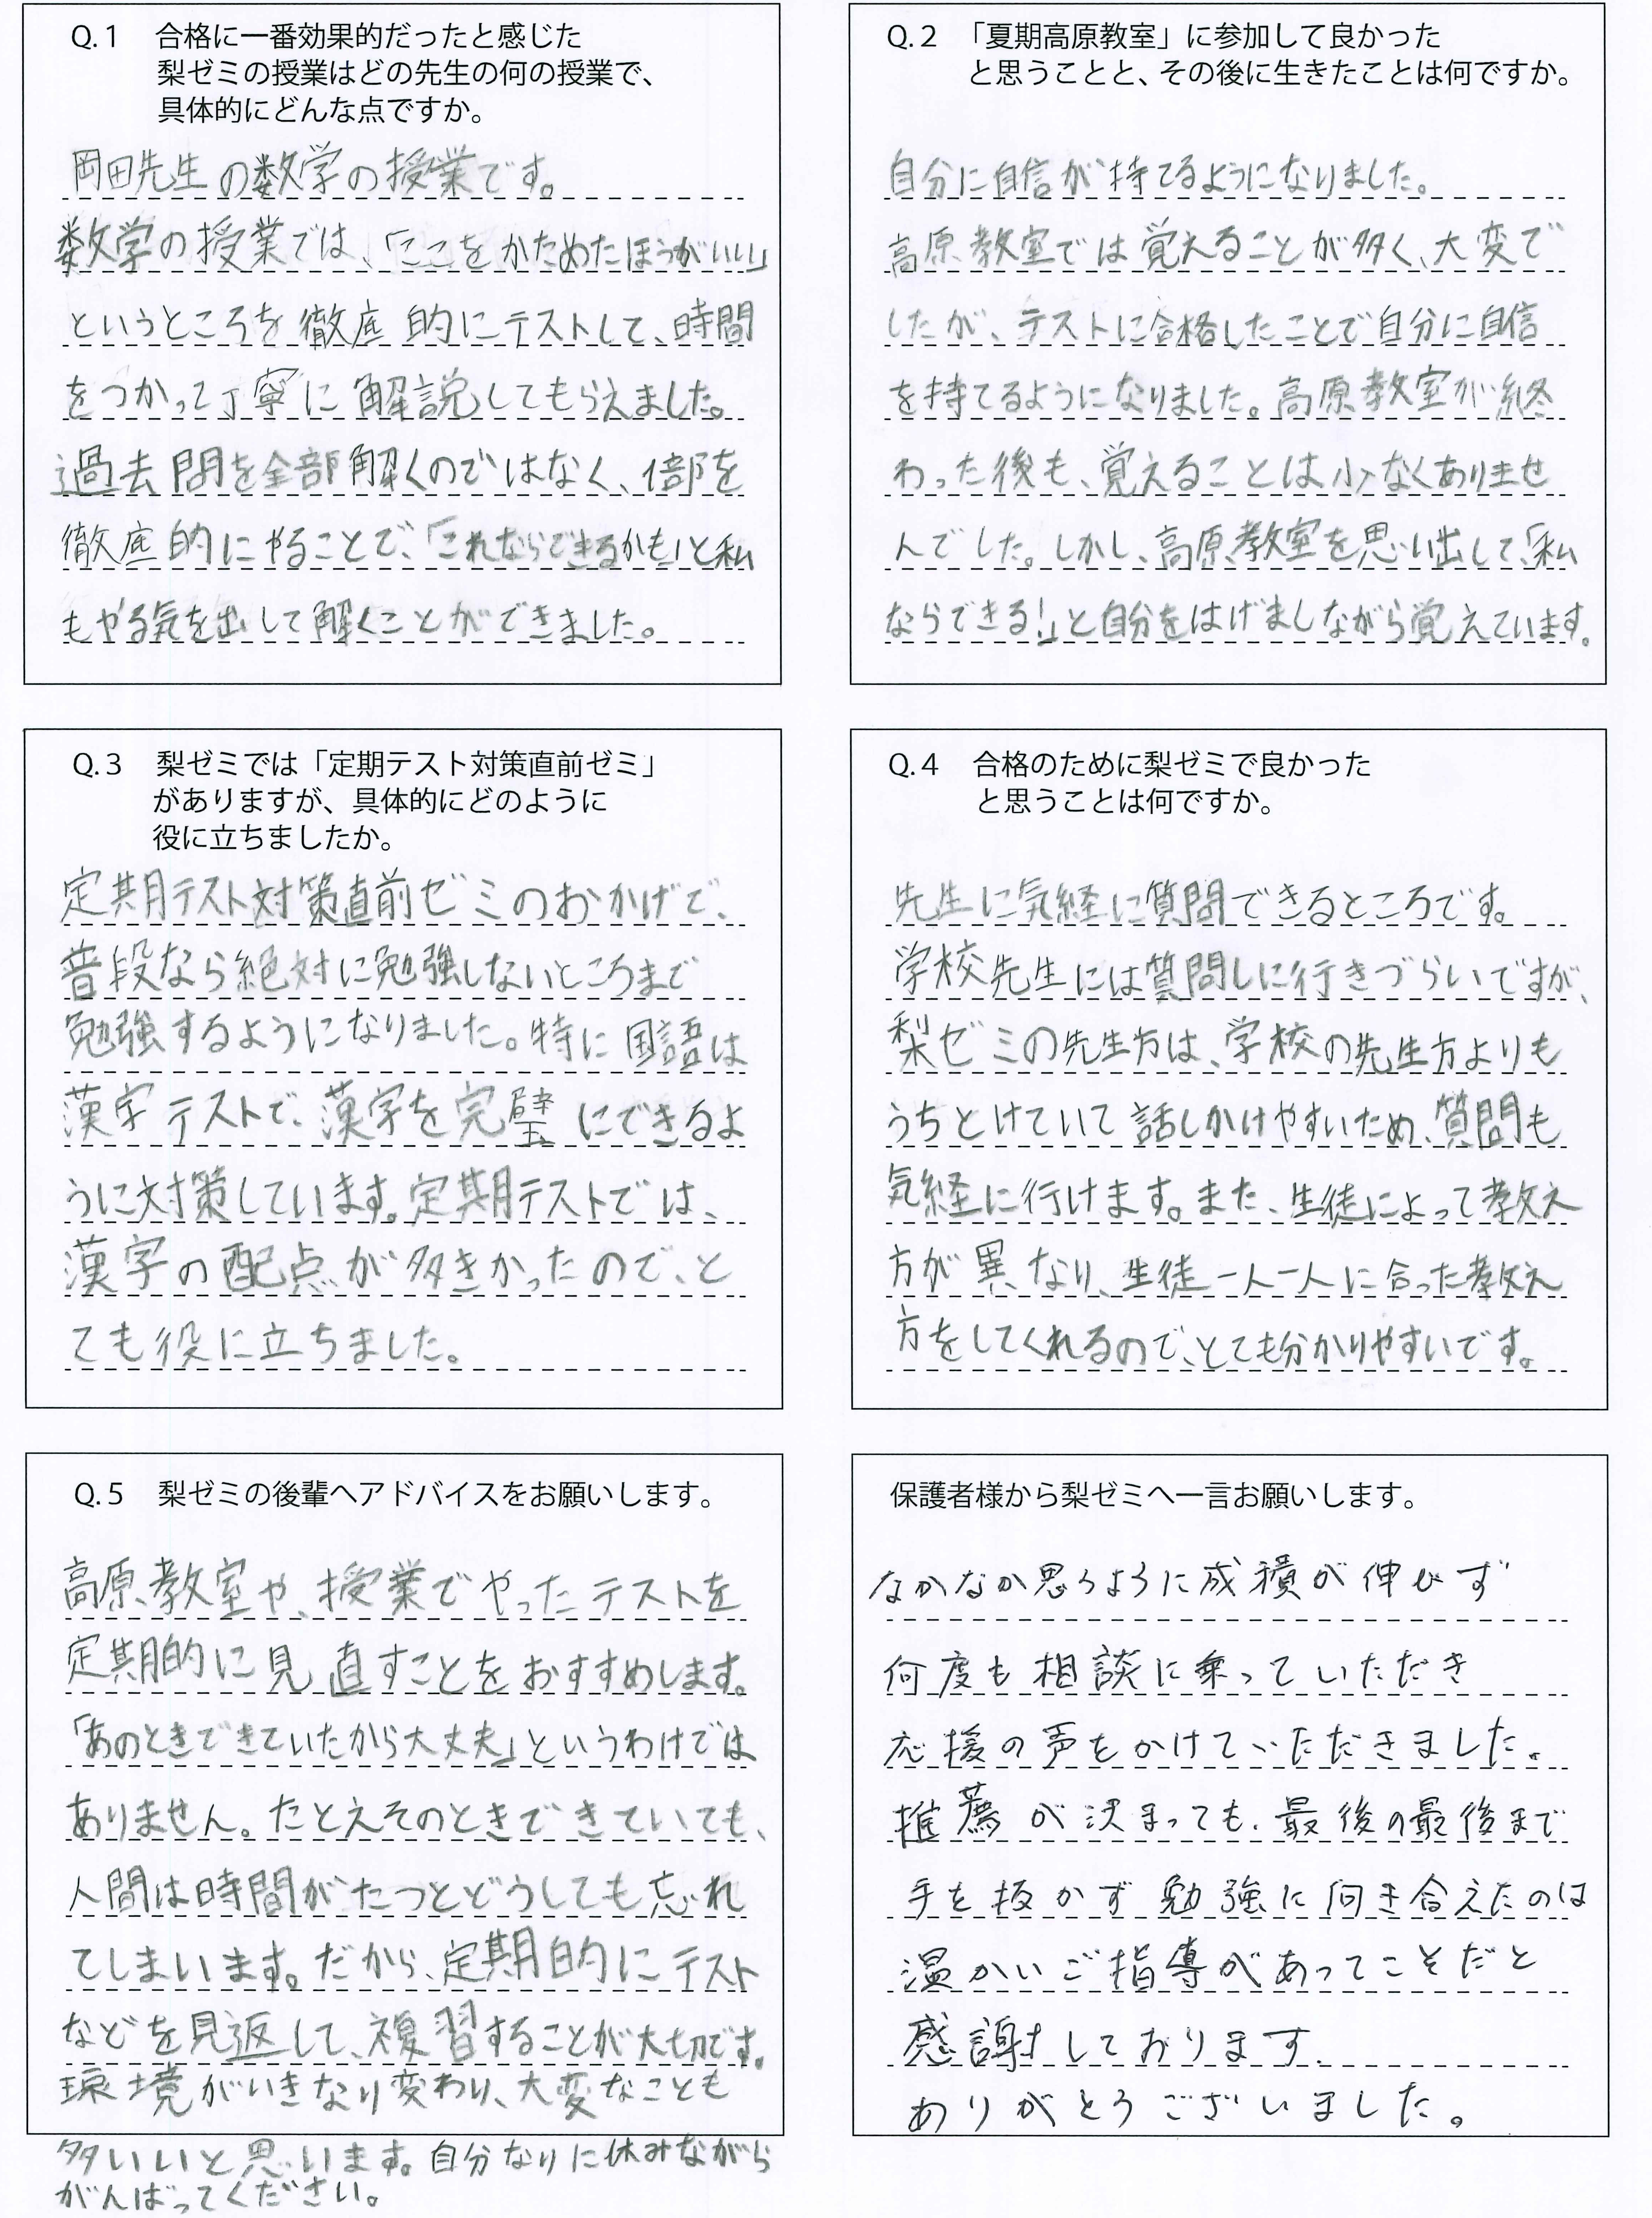 Q.1 合格に一番効果的だったと感じた
梨ゼミの授業はどの先生の何の授業で、
具体的にどんな点ですか。
岡田先生の数学の授業です。
数学の授業では、「ここをかためたほうがいい」
というところを徹底的にテストして、時間
をつかって丁寧に解説してもらえました。
過去問を全部解くのではなく、1部を
徹底的にやることで、「これならできるかも」と私
もやる気を出して解くことができました。
Q.2 「夏期高原教室」に参加して良かった
と思うことと、その後に生きたことは何ですか。
自分に自信が持てるようになりました。
高原教室では覚えることが多く、大変で
したが、テストに合格したことで自分に自信
を持てるようになりました。高原教室が終
わった後も、覚えることは少なくありませ
んでした。しかし、高原教室を思い出して、「私
ならできる!」と自分をはげましながら覚えています。
Q.3 梨ゼミでは「定期テスト対策直前ゼミ」
がありますが、具体的にどのように
役に立ちましたか。
定期テスト対策直前ゼミのおかげで、
普段なら絶対に勉強しないところまで
勉強するようになりました。特に国語は
漢字テストで、漢字を完璧にできるよ
うに対策しています。定期テストでは、
漢字の配点が多きかったので、と
ても役に立ちました。
Q.4 合格のために梨ゼミで良かった
と思うことは何ですか。
先生に気経に質問できるところです。
学校先生には質問しに行きづらいですが、
梨ゼミの先生方は、学校の先生方よりも
うちとけていて話しかけやすいため、質問も
気経に行けます。また、生徒によって教え
方が異なり、生徒一人一人に合った教え
方をしてくれるので、とても分かりやすいです。
Q.5 梨ゼミの後輩へアドバイスをお願いします。
高原教室や、授業でやったテストを
定期的に見直すことをおすすめします。
「あのときできていたから大丈夫」というわけでは
ありません。たとえそのときできていても、
人間は時間がたつとどうしても忘れ
てしまいます。だから、定期的にテスト
などを見返して、複習することが大切です。
環境がいきなり変わり、大変なことも
多いいと思います。自分なりに休みながら
がんばってください。
保護者様から梨ゼミへ一言お願いします。
なかなか思うように成積が伸びず
何度も相談に乗っていただき
応援の声をかけていただきました。
推薦が決まっても、最後の最後まで
手を抜かず勉強に向き合えたのは
温かいご指導があってこそだと
感謝しております。
ありがとうございました。